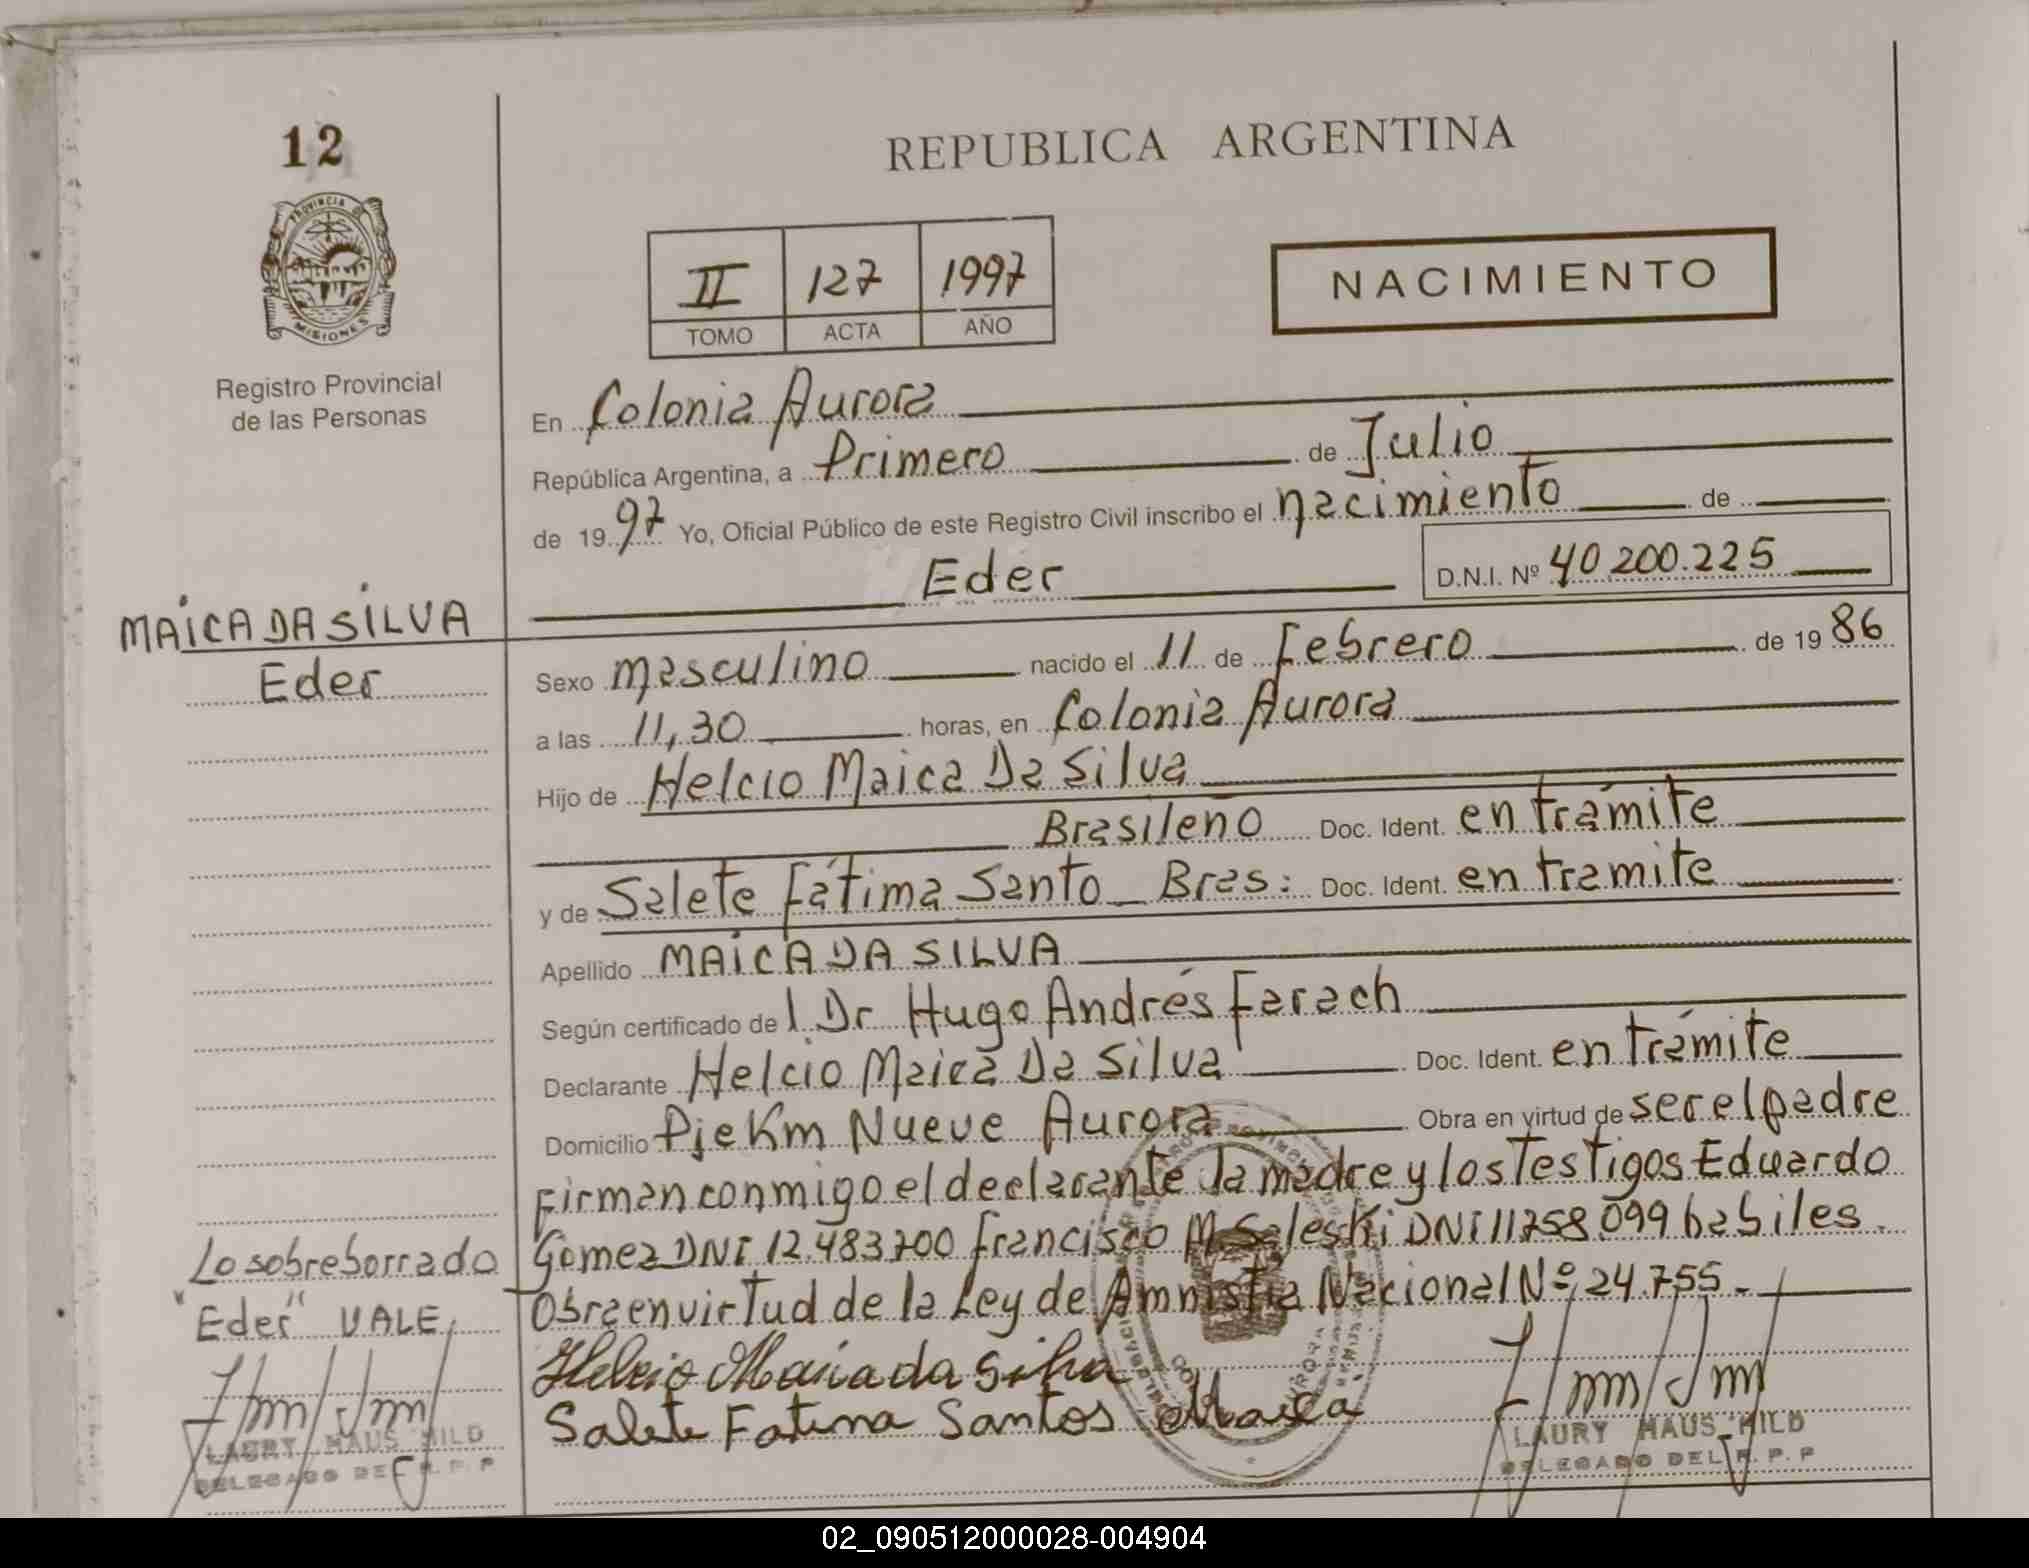 12
PROVINCIA DE
MISIONES
Registro Provincial
de las Personas
REPUBLICA ARGENTINA
II 127 1997
TOMO ACTA AÑO
NACIMIENTO
En Colonia Aurora
República Argentina, a Primero de Julio
de 1997 Yo, Oficial Público de este Registro Civil inscribo el nacimiento de
Eder D.N.I. Nº 40.200.225
MAICA DA SILVA
Eder
Sexo masculino nacido el 11 de Febrero de 1986
a las 11,30 horas, en Colonia Aurora
Hijo de Helcio Maica Da Silva
Brasileño Doc. Ident. en trámite
y de Salete Fátima Santo _ Bras: Doc. Ident. en tramite
Apellido MAICA DA SILVA
Según certificado del Dr Hugo Andrés Farach
Declarante Helcio Maica Da Silva Doc. Ident. en trámite
Domicilio Pje Km Nueve Aurora Obra en virtud de ser el padre
Firman conmigo el declarante la madre y los Testigos Eduardo
Gomez DNI 12.483.700 Francisco M Saleski DNI 11758.099 habiles.
Obra en virtud de la Ley de Amnistia Nacional Nº 24.755.-
Lo sobreborrado
"Eder" VALE
Helcio Maica da Silva
Salete Fatima Santos Maica
LAURY HAUS HILD
DELEGADO DEL R.P.P
LAURY HAUS HILD
DELEGADO DEL R.P.P
02_090512000028-004904